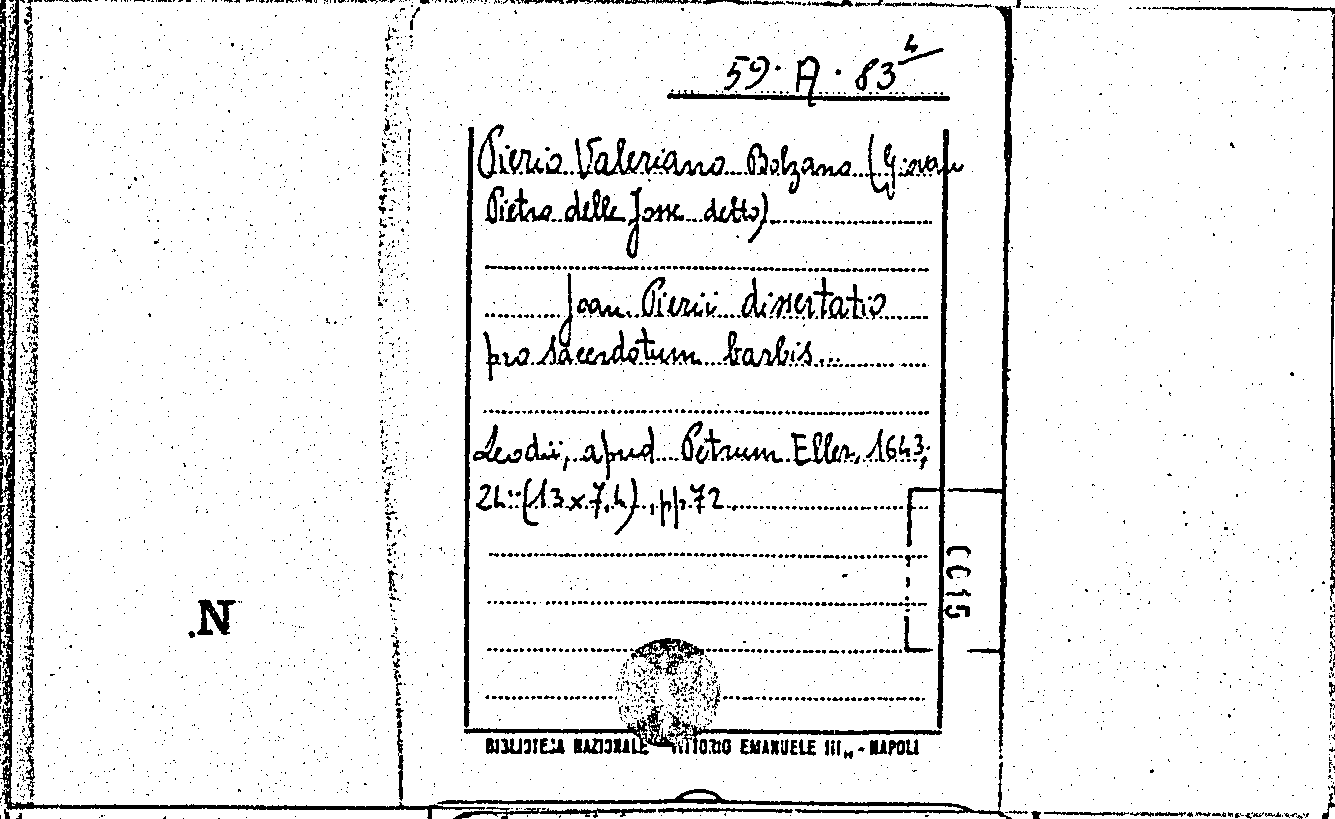 59. A. 83⁴
Pierio Valeriano Bolzano (Giovan
Pietro delle Fosse detto)
Joan. Pierii dissertatio
pro sacerdotum barbis...
Leodii, apud Petrum Eller, 1643;
24° (13 x 7,4), pp. 72.
0015
N.
BIBLIOTECA NAZIONALE VITTORIO EMANUELE III„ - NAPOLI